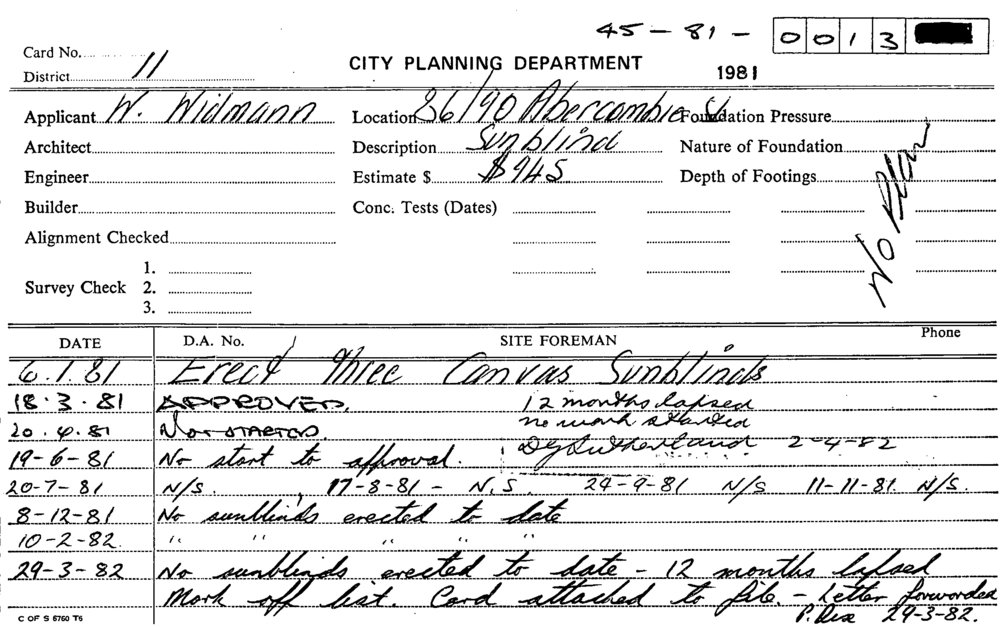 45 - 81 - 0013
Card No.
District 11
CITY PLANNING DEPARTMENT
1981
Applicant W. Widmann
Location 86/90 Abercombie St
Foundation Pressure
Architect
Description Sunblind
Nature of Foundation
Engineer
Estimate $ $945
Depth of Footings
No Plan
Builder
Conc. Tests (Dates)
Alignment Checked
1.
Survey Check 2.
3.
DATE D.A. No. SITE FOREMAN Phone
6.1.81 Erect three Canvas Sunblinds
18.3.81 APPROVED. 12 months lapsed
no work started
20.4.81 Not STARTED.
DGSutherland 2-4-82
19-6-81 No start to approval.
20-7-81 N/S. 17-8-81 - N.S. 24-9-81 N/S 11-11-81. N/S.
8-12-81 No sunblinds erected to date
10-2-82. " " " " "
29-3-82 No sunblinds erected to date - 12 months lapsed
Mark off list. Card attached to file. - Letter forwarded
29-3-82.
C OF S 6760 T6